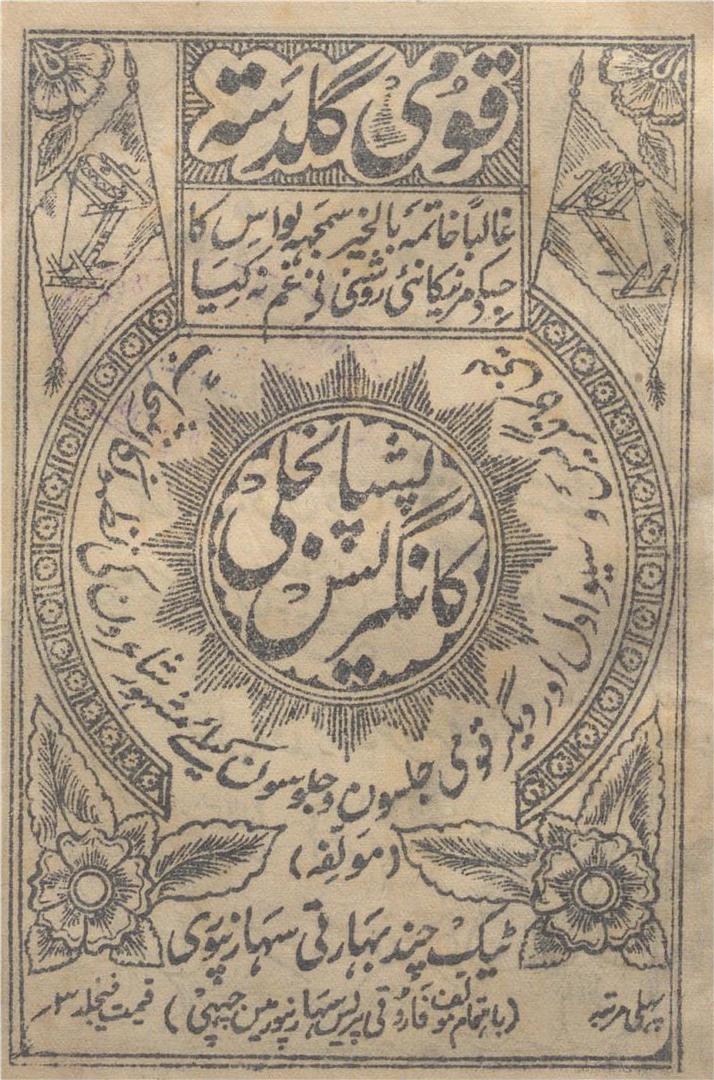 قومی گلدستہ
غالباً خاتمۂ بالخیر سمجہہ لو اس کا
جسکو مرنیکا نئی روشنی نی غم نہ کیا
کانگریس
پشپانجلی
سیوا دل اور دیگر قومی جلسون و جلوسون کیلئے مشہور شاعرون کی
(مؤلفہ)
ٹیک چند بہارتی سہارنپوری
پہلی مرتبہ
(باہتمام مولف فاروقی پریس سہارنپور مین چہپی)
قیمت فیجلد ۳؍